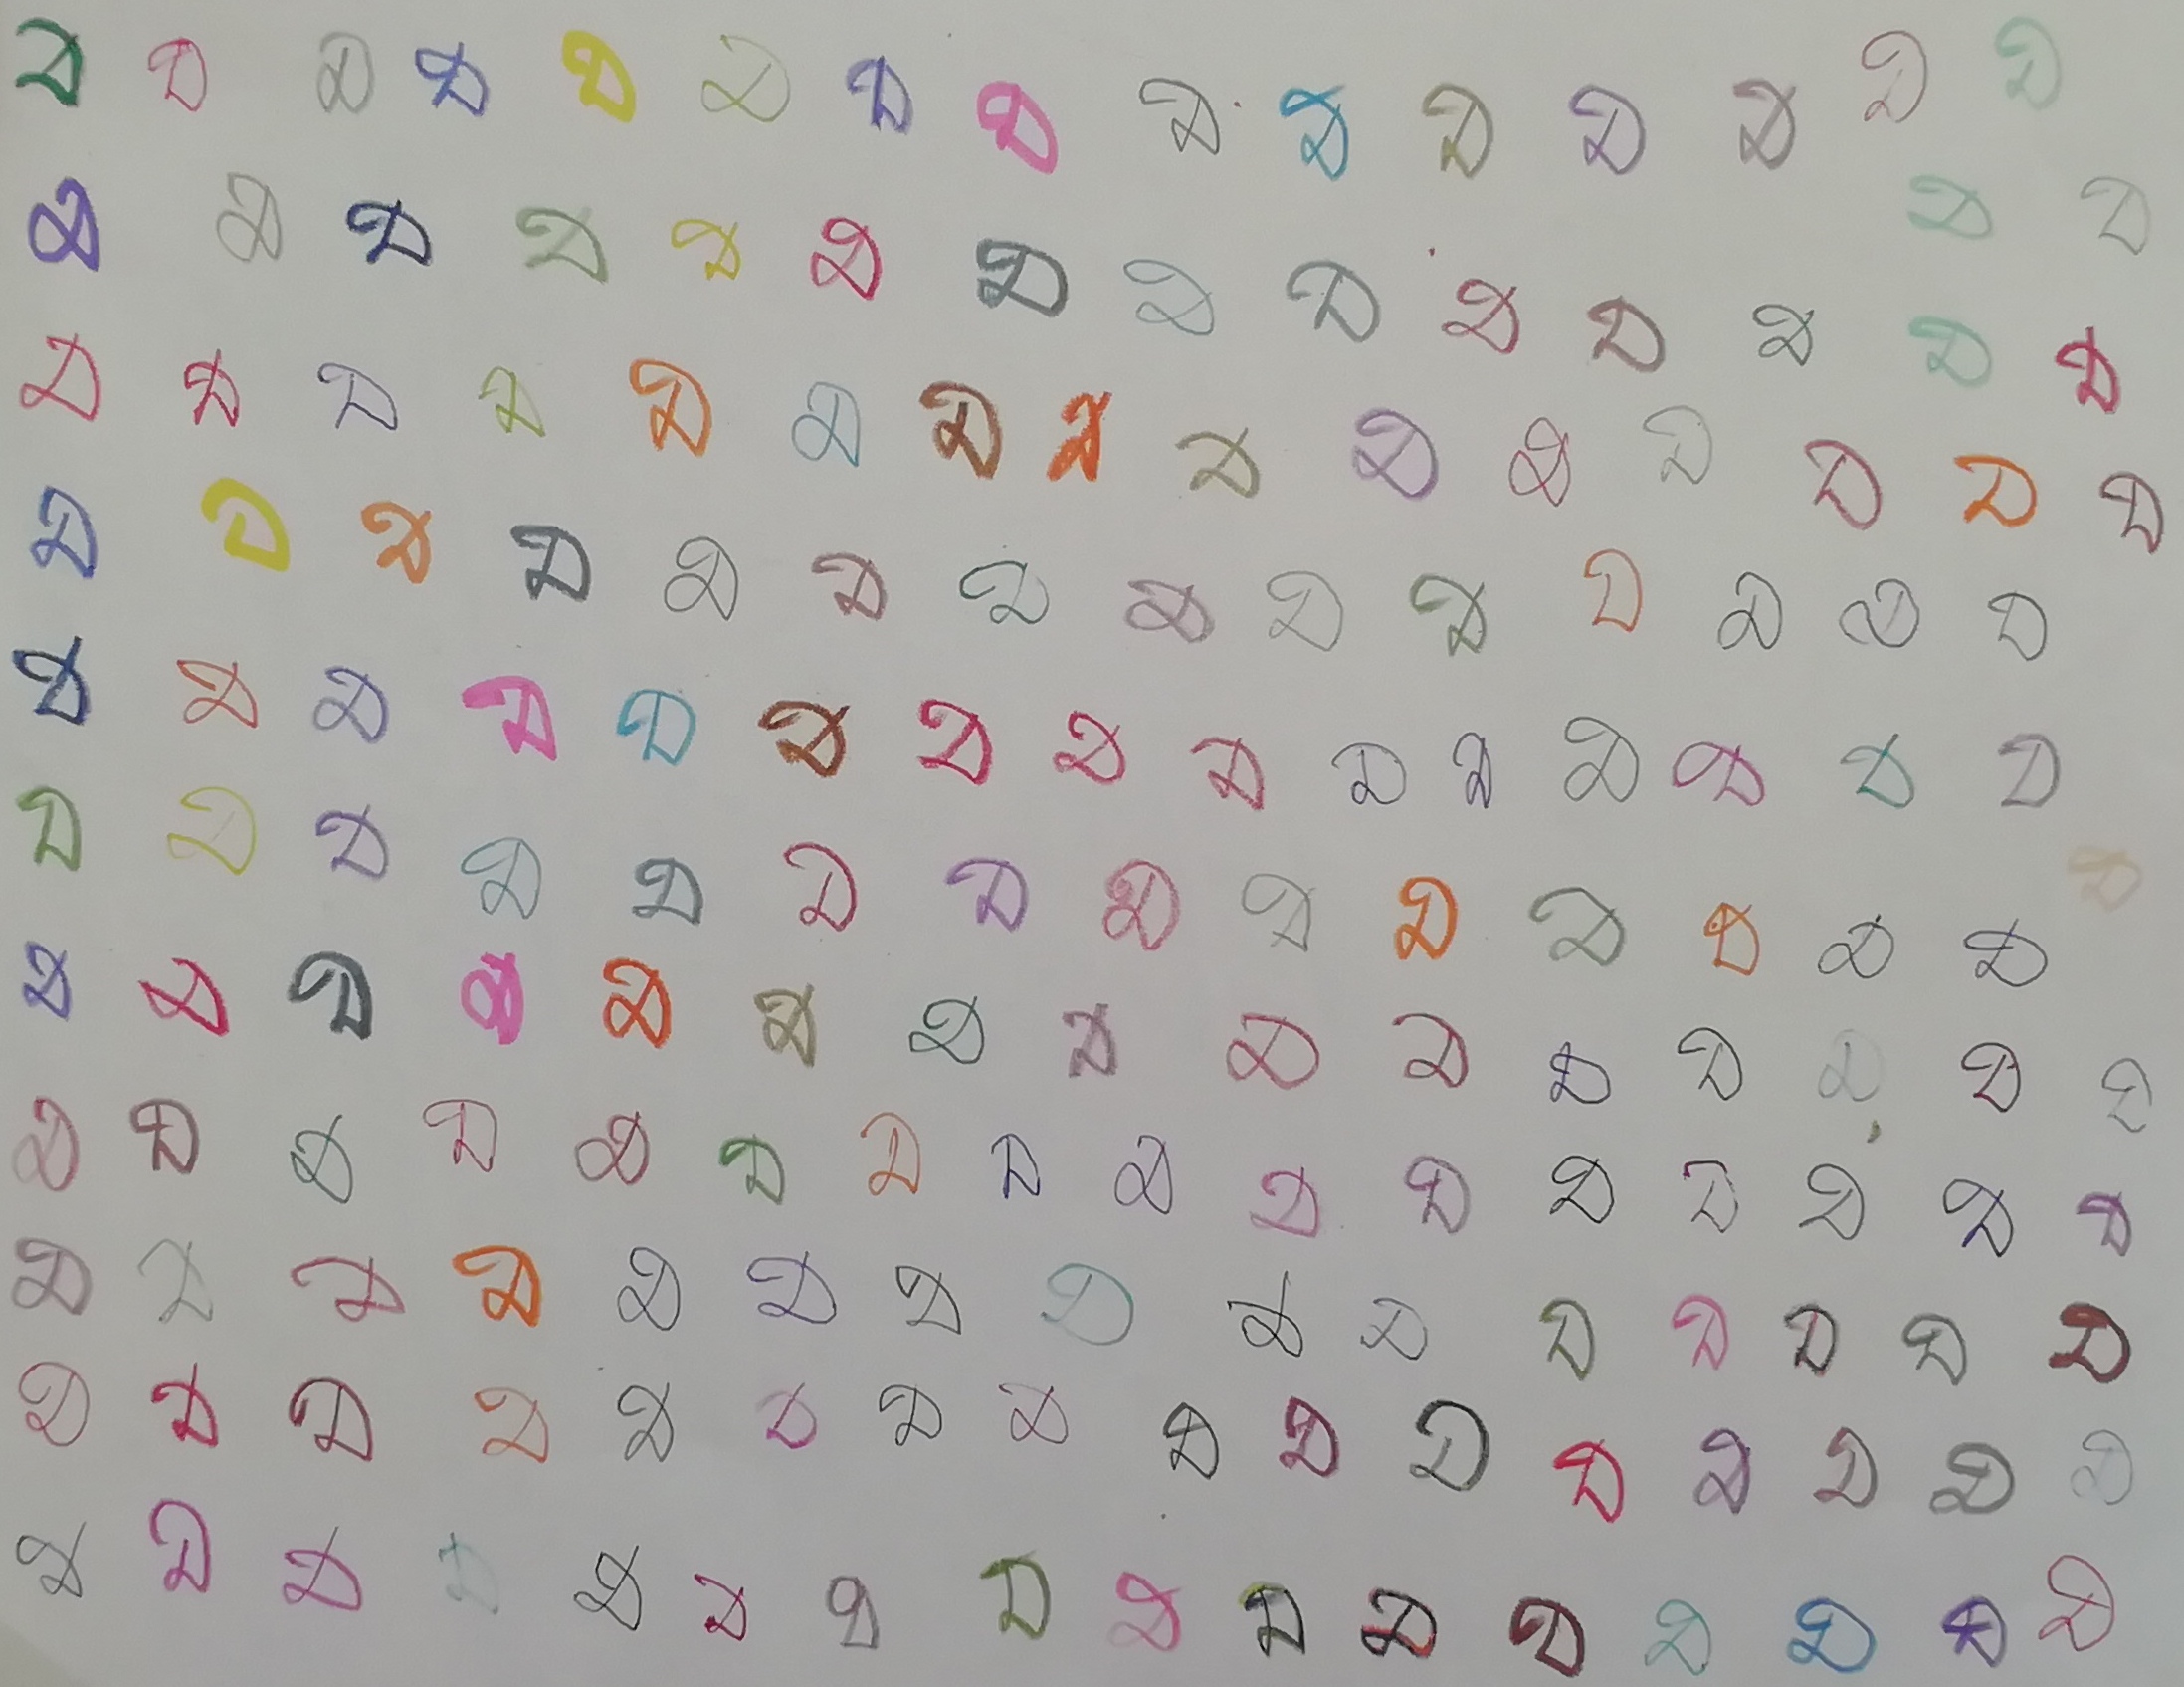 D D D D D D D D D D D D D D D
D D D D D D D D D D D D D D D D
D D D D D D D D D D D D D D D
D D D D D D D D D D D D D D
D D D D D D D D D D D D D D D
D D D D D D D D D D D D D D D
D D D D D D D D D D D D D D D
D D D D D D D D D D D D D D D D
D D D D D D D D D D D D D D D
D D D D D D D D D D D D D D D D
D D D D D D D D D D D D D D D D